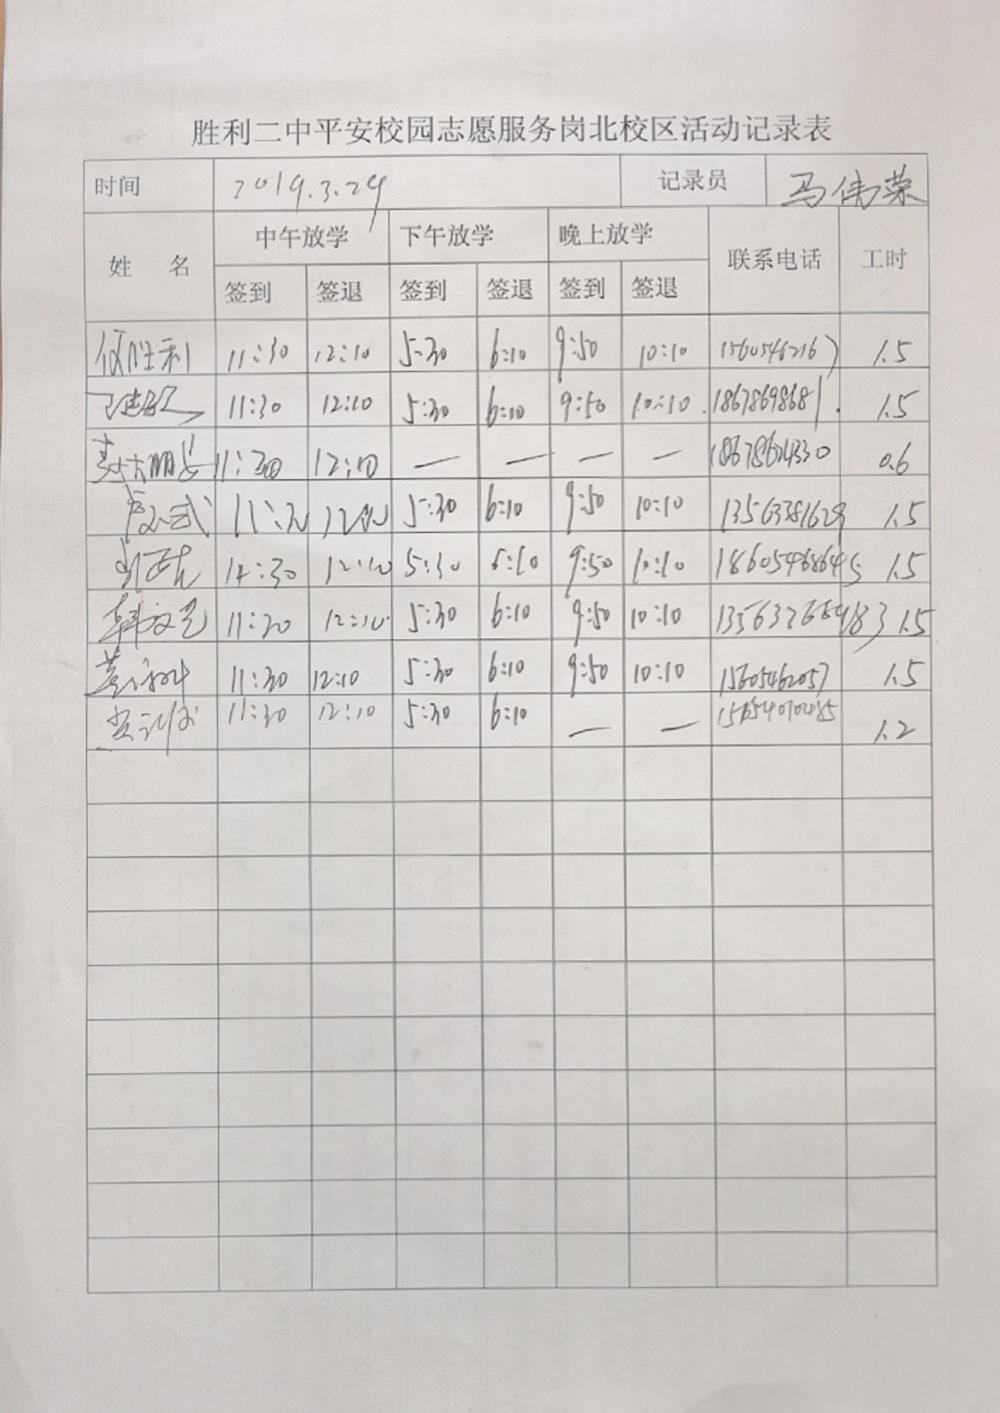 胜利二中平安校园志愿服务岗北校区活动记录表
时间 2019.3.29 记录员 马伟荣
姓 名 中午放学 下午放学 晚上放学 联系电话 工时
签到 签退 签到 签退 签到 签退
胜利 11:30 12:10 5:30 6:10 9:50 10:10 15605462167 1.5
11:30 12:10 5:30 6:10 9:50 10:10 18678698681 1.5
11:30 12:10 — — — — 18678624330 0.6
5:30 6:10 9:50 10:10 13563381629 1.5
12:10 5:30 6:10 9:50 10:10 18605468645 1.5
韩文艺 11:30 12:10 5:30 6:10 9:50 10:10 1.5
11:30 12:10 5:30 6:10 9:50 10:10 15605462057 1.5
11:30 12:10 5:30 6:10 — — 1.2